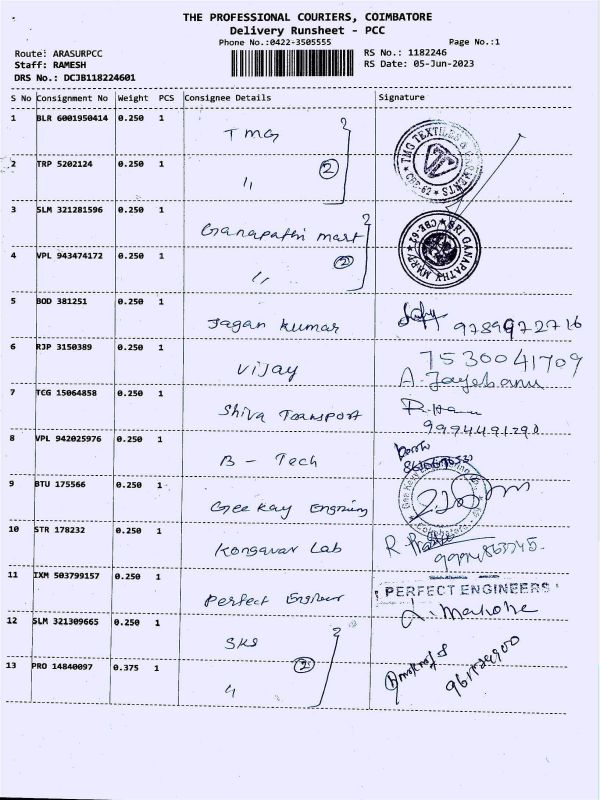 THE PROFESSIONAL COURIERS, COIMBATORE
Delivery Runsheet - PCC
Phone No.:0422-3505555
Page No.:1
Route: ARASURPCC
RS No.: 1182246
Staff: RAMESH
RS Date: 05-Jun-2023
DRS No.: DCJB118224601
S No Consignment No Weight PCS Consignee Details Signature
1 BLR 6001950414 0.250 1 TMG
TMG TEXTILES & GARMENTS
2 TRP 5202124 0.250 1 " 2
3 SLM 321281596 0.250 1 Ganapathi mart
SRI GANAPATHY MART CBE-62
4 VPL 943474172 0.250 1 " 2
5 BOD 381251 0.250 1 Jagan kumar 9789972716
6 RJP 3150389 0.250 1 Vijay 7530041709
A. Jayabanu
7 TCG 15064858 0.250 1 Shiva Transport
9994491290
8 VPL 942025976 0.250 1 B - Tech
9 BTU 175566 0.250 1 Gee Kay Engning
10 STR 178232 0.250 1 Kongavar Lab R
11 IXM 503799157 0.250 1 Perfect Engineer PERFECT ENGINEERS
12 SLM 321309665 0.250 1 SKS
13 PRO 14840097 0.375 1 " 2